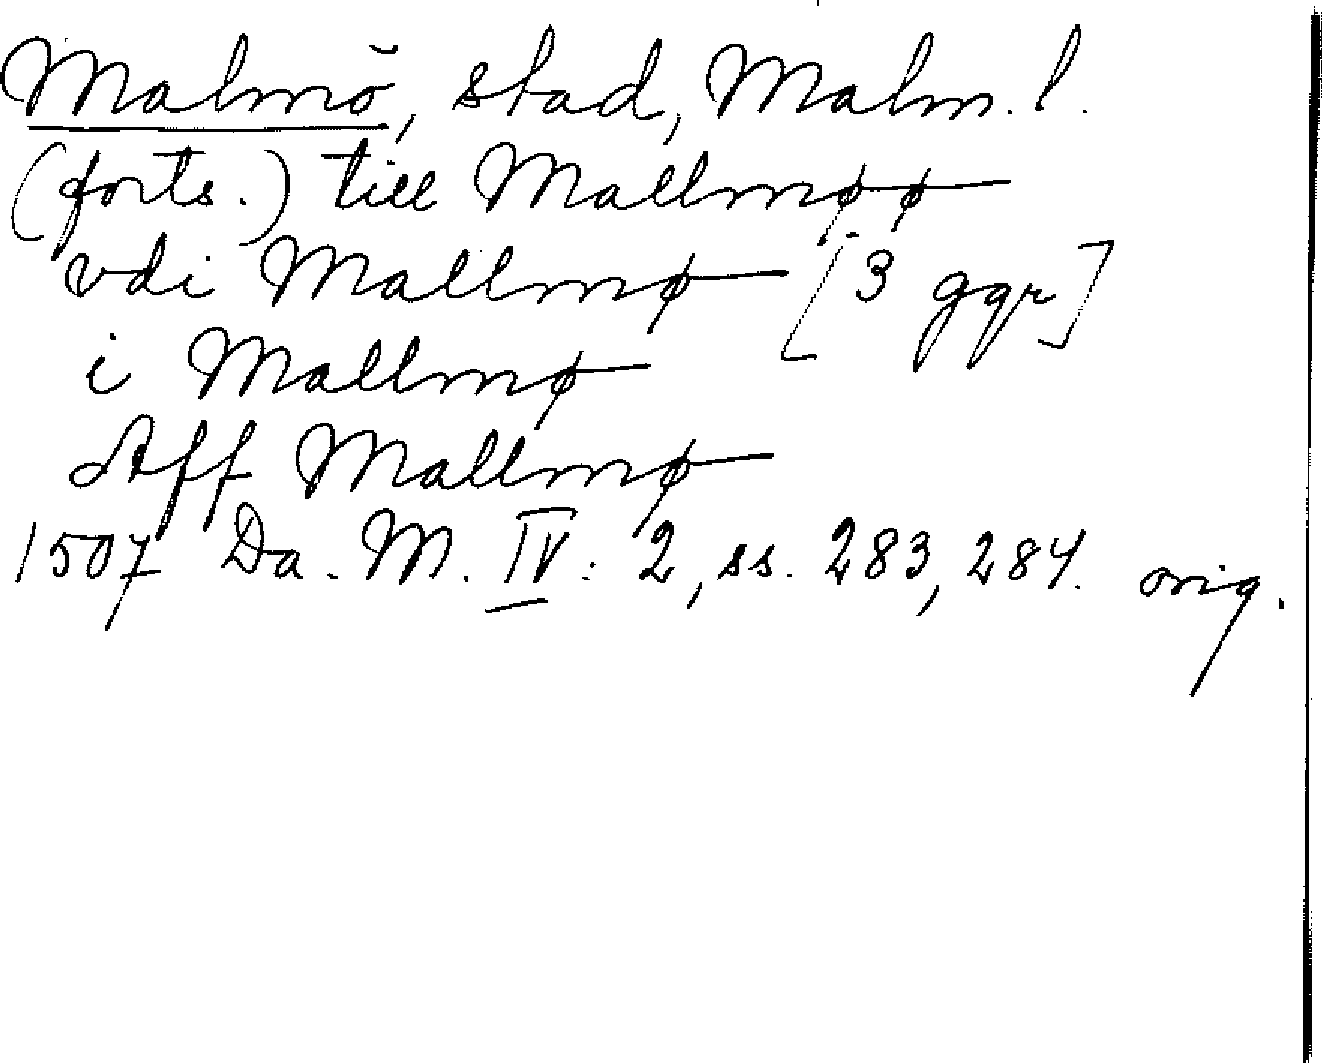 Malmö, stad, Malm. l.
(forts.) till Mallmøø
vdi Mallmø [3 ggr]
i Mallmø
Aff Mallmø
1507 Da. M. IV: 2, ss. 283, 284. orig.